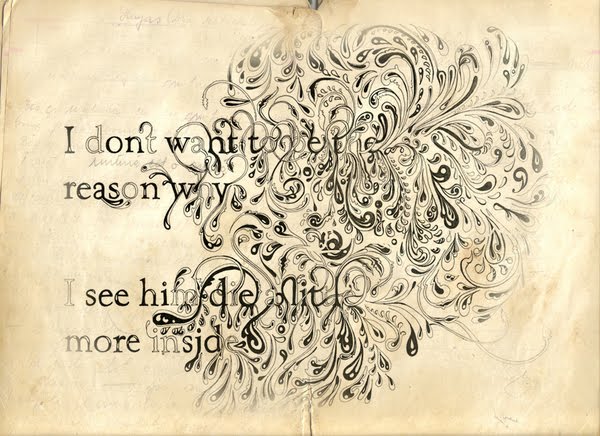 I dont want to be the
reason why
I see him die a little
more inside